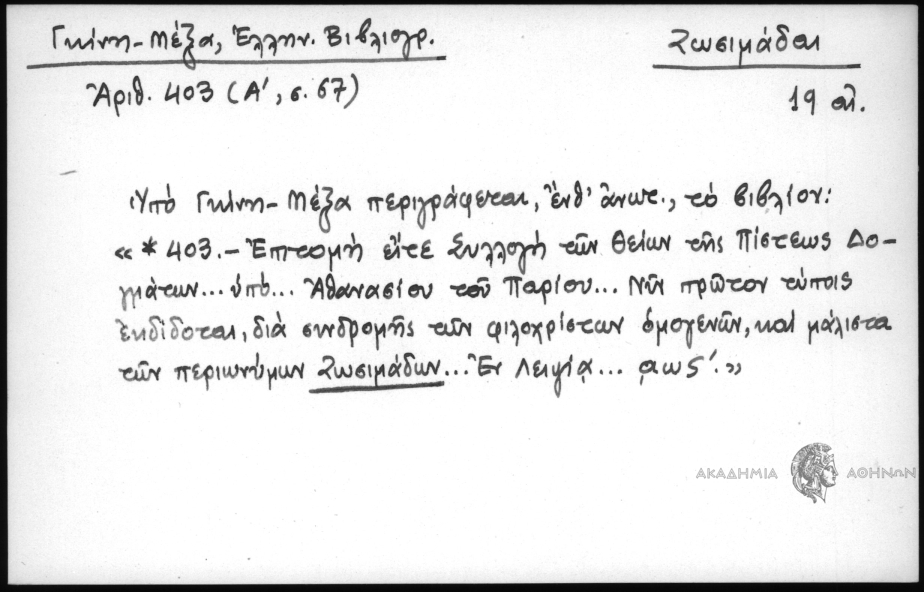 Γκίνη-Μέξα, Ἑλλην. Βιβλιογρ.
Ζωσιμάδαι
Ἀριθ. 403 (Α΄, σ. 67)
19 αἰ.
Ὑπὸ Γκίνη-Μέξα περιγράφεται, ἔνθ' ἀνωτ., τὸ βιβλίον:
«*403.- Ἐπιτομὴ εἴτε Συλλογὴ τῶν θείων τῆς Πίστεως Δο-
γμάτων... ὑπὸ... Ἀθανασίου τοῦ Παρίου... Νῦν πρῶτον τύποις
ἐκδίδοται, διὰ συνδρομῆς τῶν φιλοχρίστων ὁμογενῶν, καὶ μάλιστα
τῶν περιωνύμων Ζωσιμάδων... Ἐν Λειψίᾳ... αωϛ΄.»
ΑΚΑΔΗΜΙΑ ΑΘΗΝΩΝ